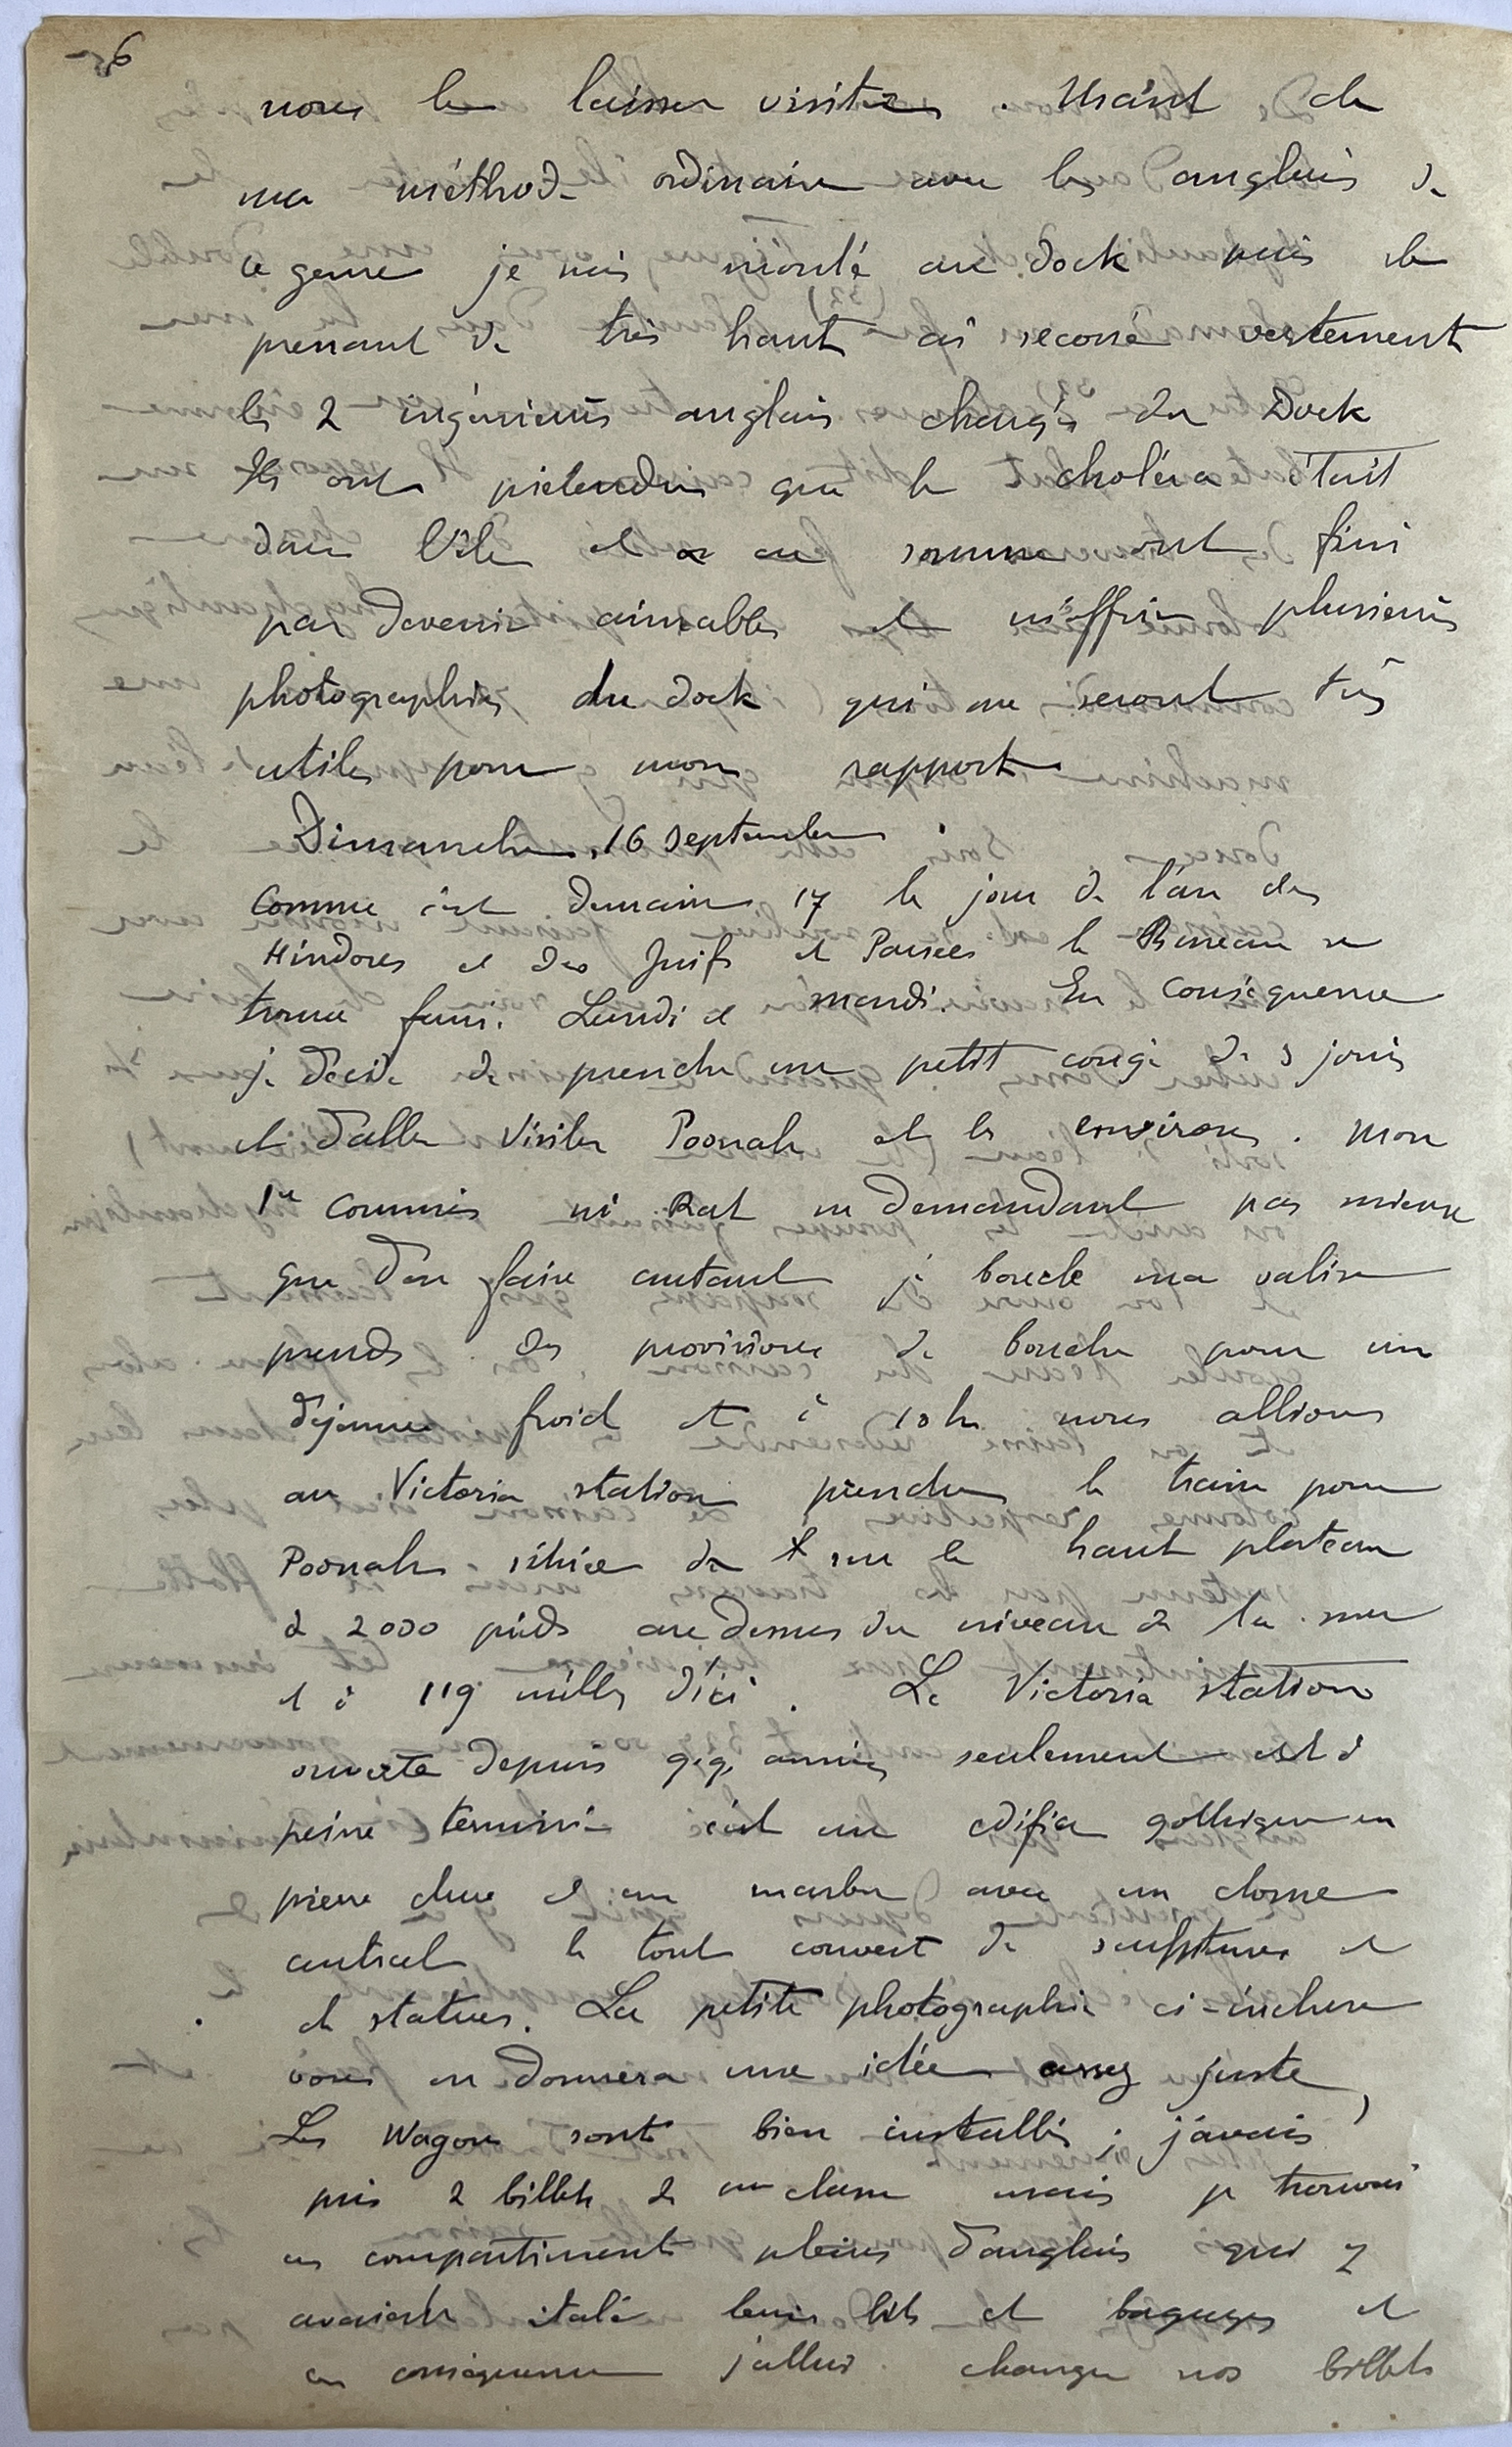 6
nous le laisser visiter. Usant de
ma méthode ordinaire avec les anglais de
ce genre je suis monté au dock puis le
prenant de très haut ai secoué vertement
les 2 ingénieurs anglais chargés du Dock
Ils ont prétendu que le choléra était
dans l'île et en somme ont fini
par devenir aimables et m'offrir plusieurs
photographies du dock qui me seront très
utiles pour mon rapport
Dimanche, 16 septembre
Comme c'est demain 17 le jour de l'an des
Hindous et des Juifs et Parsees le Bureau se
trouve fermé. Lundi et mardi. En conséquence
je décide de prendre un petit congé de 3 jours
et d'aller visiter Poonah et les environs. Mon
1er commis mr Rat ne demandant pas mieux
que d'en faire autant je boucle ma valise
prends des provisions de bouche pour un
déjeuner froid et à 10 h. nous allions
au Victoria station prendre le train pour
Poonah située sur le haut plateau
à 2000 pieds au dessus du niveau de la mer
et à 119 milles d'ici. La Victoria station
ouverte depuis qq. années seulement est à
peine terminée c'est un édifice gothique en
pierre dure et en marbre avec un dome
central le tout couvert de sculptures et
et statues. La petite photographie ci-incluse
vous en donnera une idée assez juste,
Les Wagons sont bien installés; j'avais
pris 2 billets de classe mais je trouvai
ces compartiments pleins d'anglais qui y
avaient étalé leurs lits et bagages et
en conséquence j'allai changer nos billets